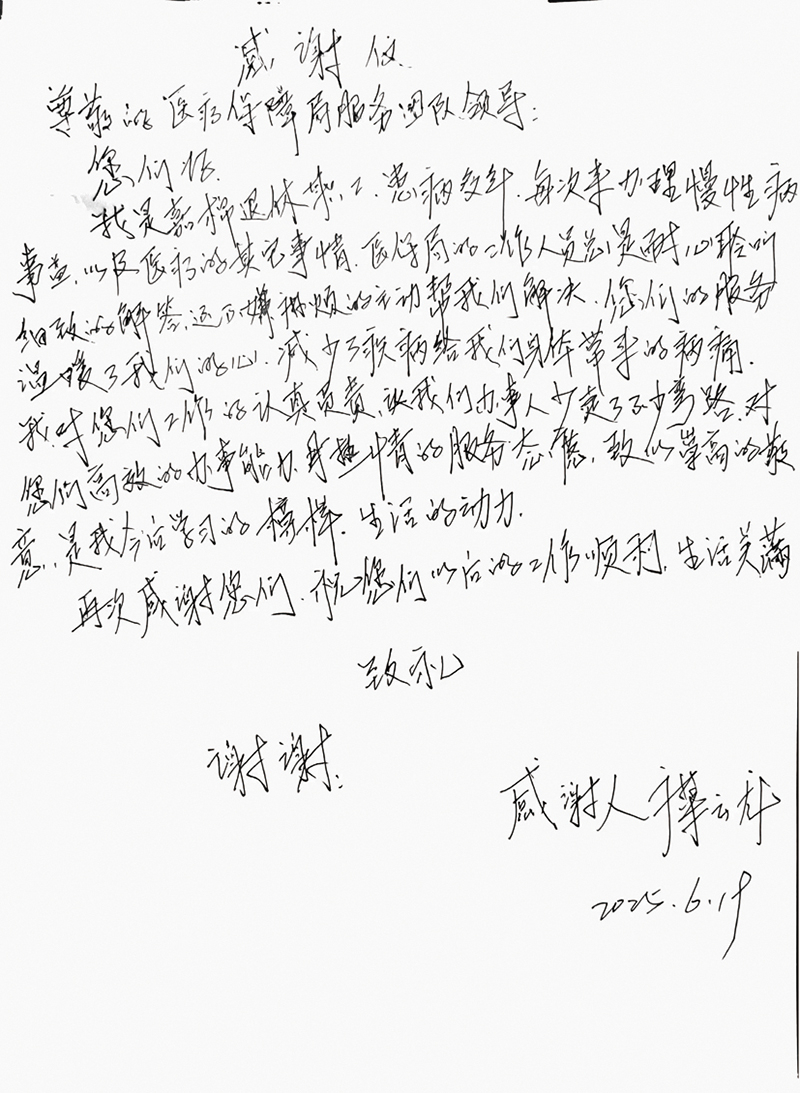 感谢信
尊敬的医疗保障局服务团队领导:
您们好.
我是嘉棉退休职工.患病多年.每次来办理慢性病
事宜,以及医疗的其它事情.医保局的工作人员总是耐心聆听
细致的解答,还不嫌麻烦的主动帮我们解决.您们的服务
温暖了我们的心.减少了疾病给我们身体带来的病痛.
我对您们工作的认真负责,让我们办事人少走了不少弯路.对
您们高效的办事能力.和热情的服务态度,致以崇高的敬
意,是我今后学习的榜样.生活的动力.
再次感谢您们.祝您们以后的工作顺利,生活美满
致礼
谢谢:
感谢人
2025.6.19